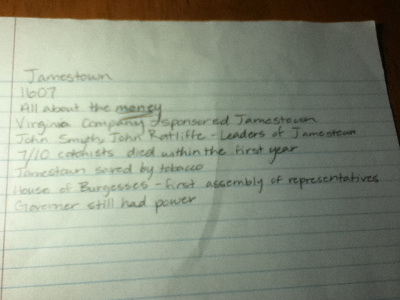 Jamestown
1607
All about the money
Virginia Company sponsored Jamestown
John Smyth, John Ratliffe - Leaders of Jamestown
7/10 colonists died within the first year
Jamestown saved by tobacco
House of Burgesses - first assembly of representatives
Governer still had power